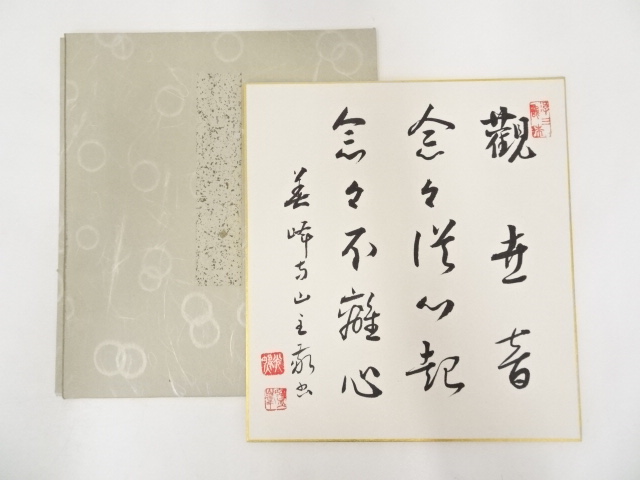 觀世音
念々從心起
念々不離心
善峰寺山主